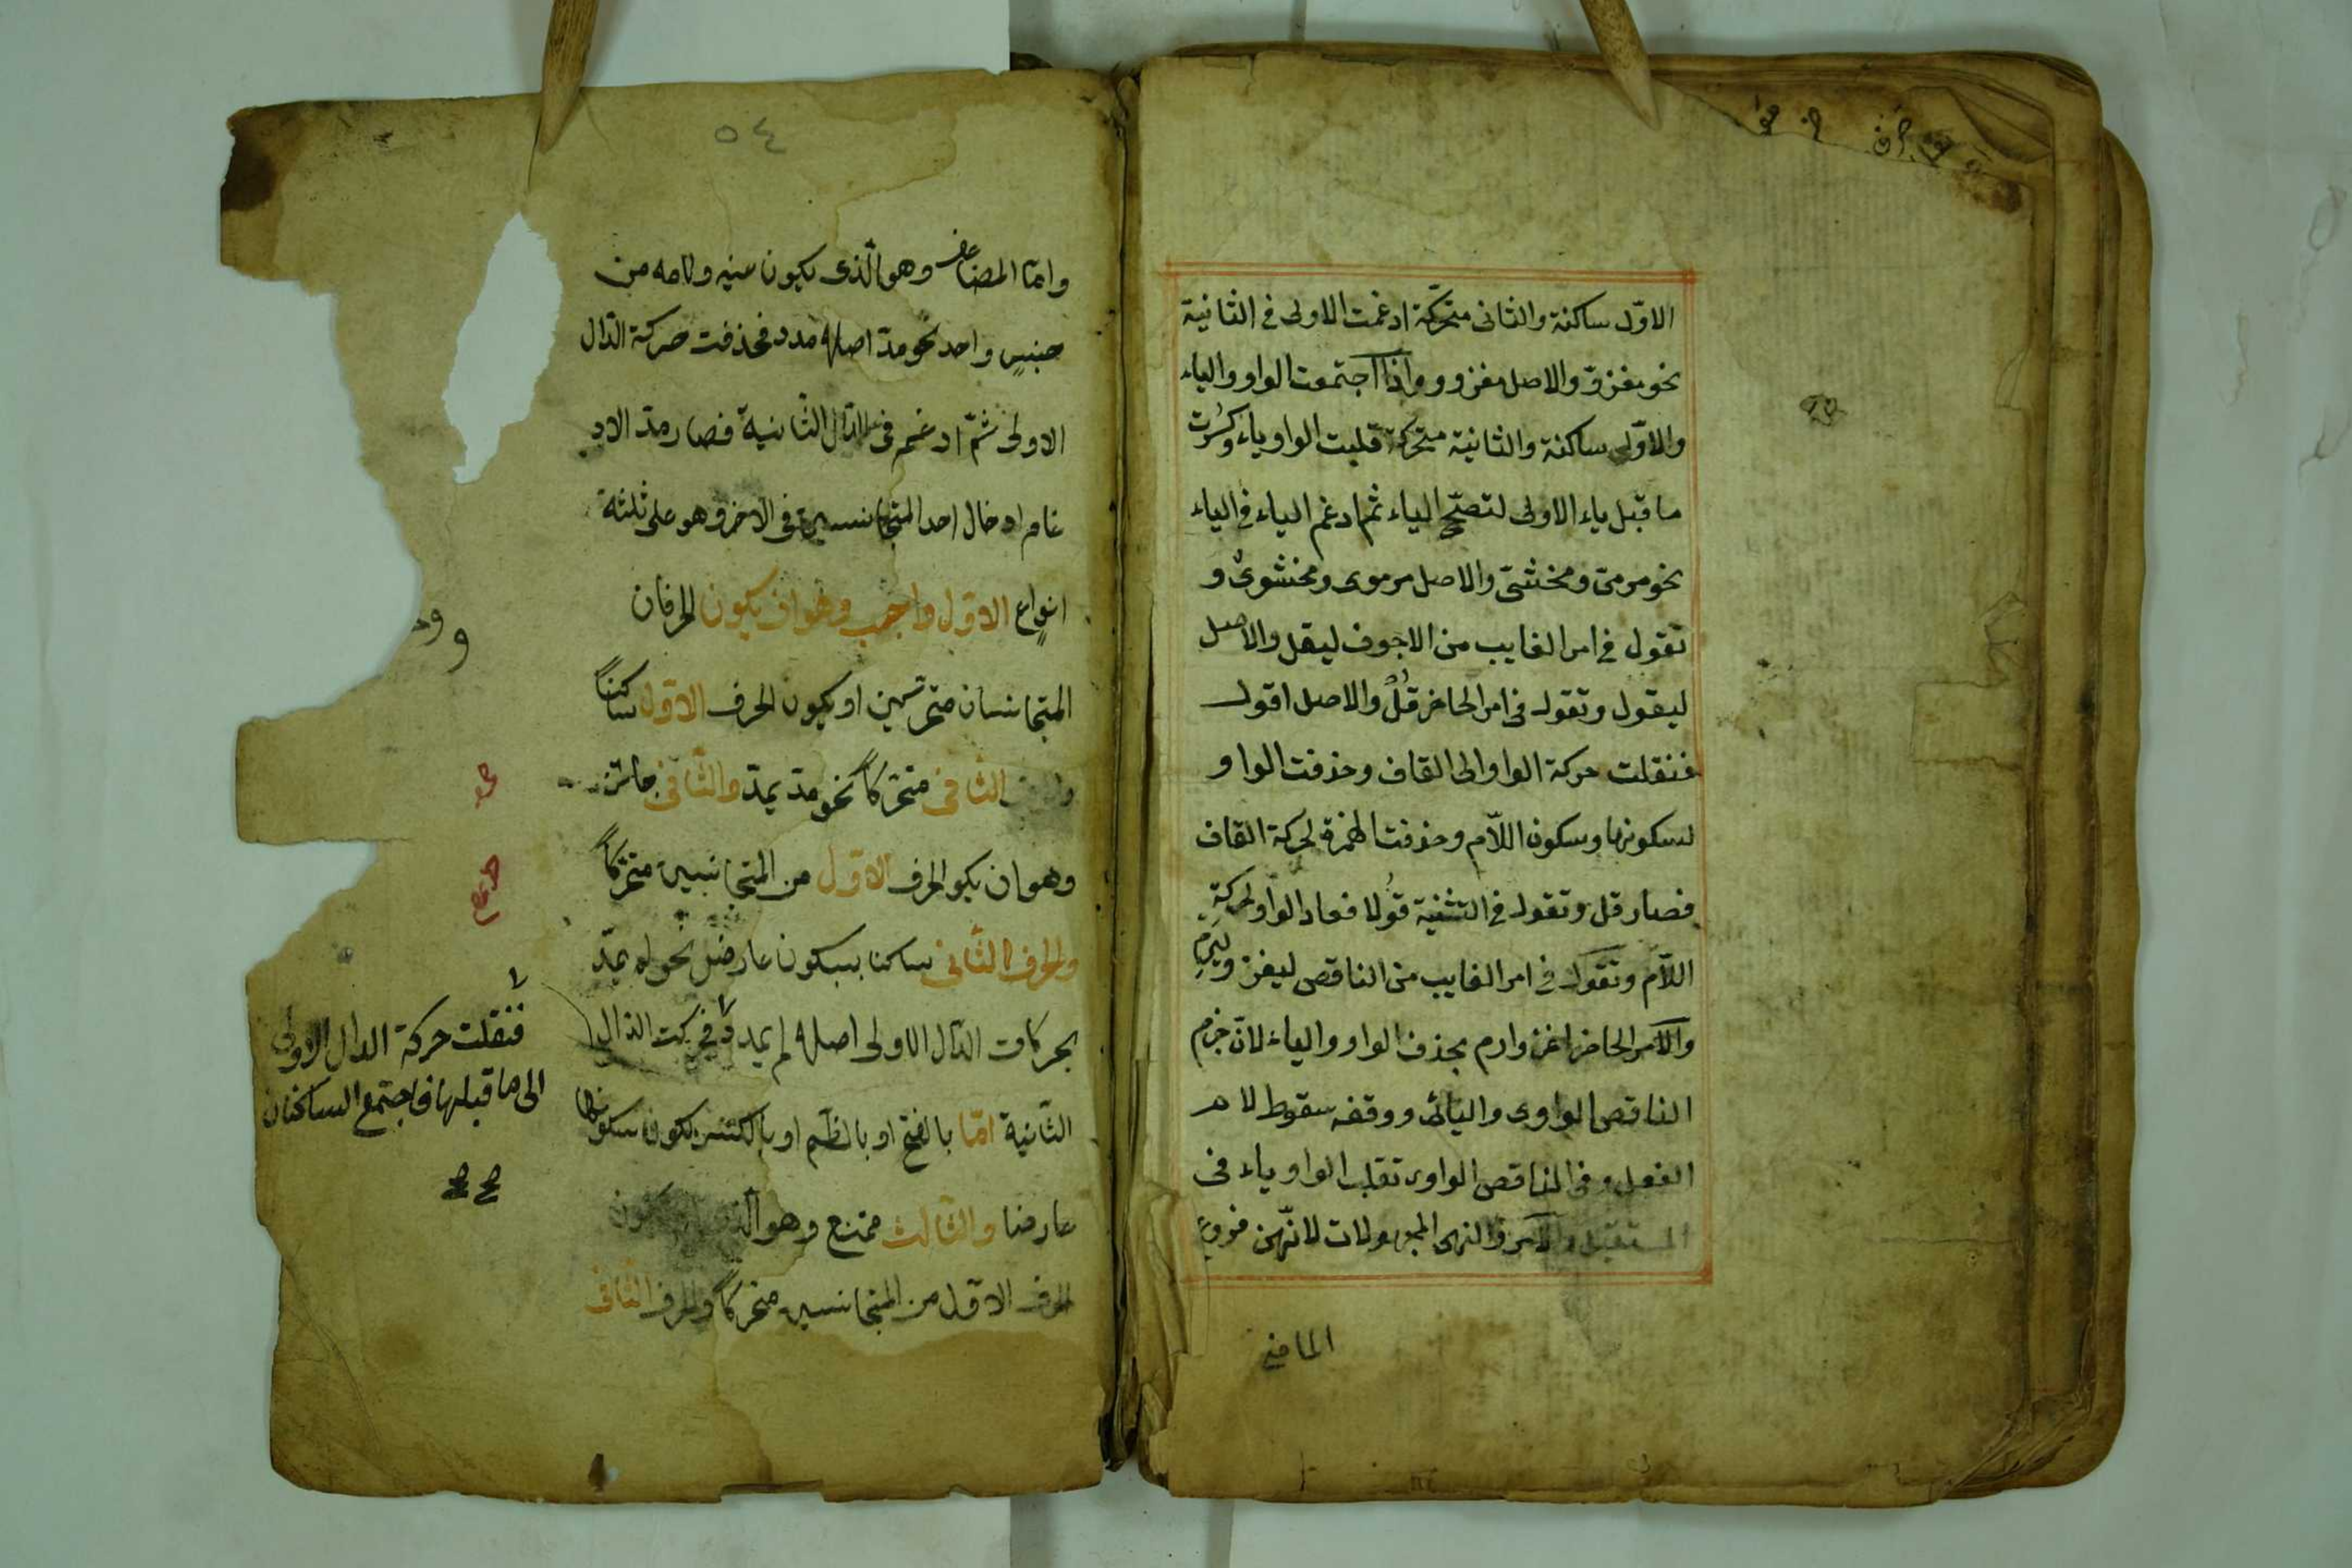 الاوّل ساكنة والثانى متحرّكة ادغمت الاولى فى الثانية
نحو مغزوّ والاصل مغزوو واذا اجتمعت الواو والياء
والاوّلى ساكنة والثانية متحركة قلبت الواو ياء وكسرت
ما قبل ياء الاولى لتصّح الياء ثم ادغم الياء فى الياء
نحو مرمىّ ومخشىّ والاصل مرموى ومخشوىٌ و
تقول فى امر الغايب من الاجوف ليقل والاصل
ليقول وتقول فى امر الحاضر قُلْ والاصل اقول
فنقلت حركة الواو الى القاف وحذفت الواو
لسكونها وسكون اللّام وحذفت الهمزة لحركة القاف
فصار قل وتقول فى التثنية قُولا فعاد الواو لحركةِ
اللّام وتقول فى امر الغايب من الناقص ليغز وليرمِ
والامر الحاضر اغز وارم بحذف الواو والياء لانّ جزم
الناقص الواوى واليائى ووقفه سقوط لام
الفعل وفى الناقص الواوى تقلب الواو ياء فى
المستقبل والامر والنهى المجهولات لانّهن فروع
الماضى
٥٤
وامّا المضاعف وهو الّذى يكون عينه ولامه من
جنسٍ واحد نحو مدّ اصله مدد فحذفت حركة الدّال
الاولى ثمّ ادغم فى الدّال الثّانية فصار مدّ الاد
غام ادخال احد المتجانسين فى الاخر وهو على ثلثة
انواع الاوّل واجب وهو ان يكون الحرفان
المتجانسان متحركين او يكون الحرف الاوّل ساكناً
والحرف الثّانى متحرّكاً نحو مدّ يمدّ والثّانى جائز
وهو ان يكو الحرف الاوّل من المتجانسين متحرّكاً
والحرف الثّانى ساكنا بسكون عارض نحو لم يمدّ
بحركات الدّال الاولى اصله لم يمدد فحركت الدّال
الثّانية امّا بالفتح او بالظم او بالكسر لكون سكونها
عارضا والثّالث ممتنع وهو ان يكون
الحرف الاوّل من المتجانسين متحرّكاً والحرف الثّانى
فنقلت حركة الدال الاولى
الى ما قبلها فاجتمع الساكنان
صح صح